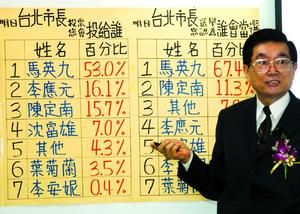 明日台北市長投票您會投給誰
姓名 百分比
1 馬英九 53.0%
2 李應元 16.1%
3 陳定南 15.7%
4 沈富雄 7.0%
5 其他 4.3%
6 葉菊蘭 3.5%
7 李安妮 0.4%
明日台北市長選舉您認為誰會當選
姓名 百分
1 馬英九 67.4
2 陳定南 11.3%
3 其他 7.
4 李應元
5 沈富
6 葉菊
7 李安